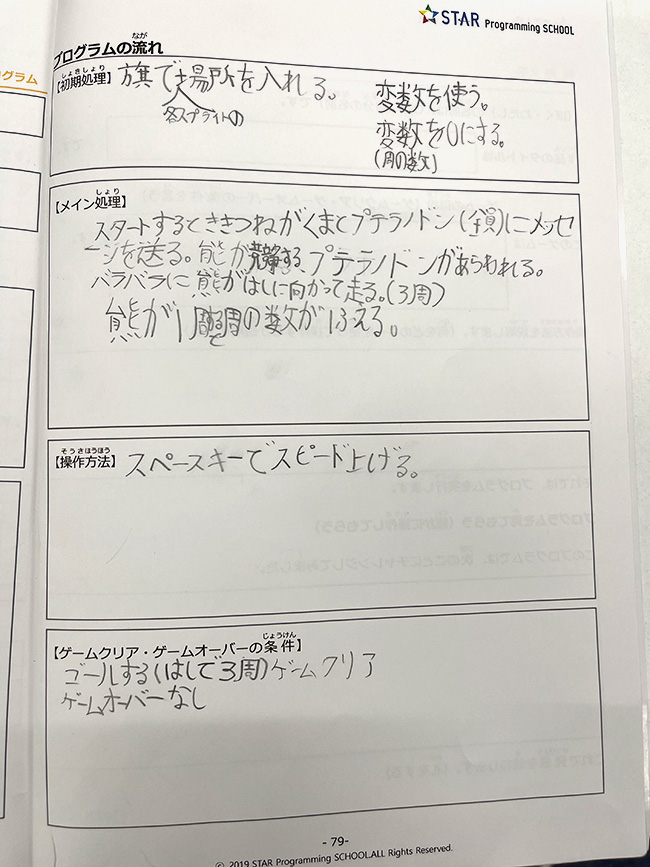 STAR Programming SCHOOL
プログラムの流れ
ログラム
【初期処理】旗で場所を入れる。 変数を使う。
各スプライトの
変数を0にする。
(周の数)
【メイン処理】
スタートするときき つねがくまとプテラノドン(全員)にメッセ
ージを送る。熊が競争する、プテラノドンがあらわれる。
バラバラに熊がはしに向かって走る。(3周)
熊が1周すると周の数が1ふえる。
【操作方法】スペースキーでスピード上げる。
【ゲームクリア・ゲームオーバーの条件】
ゴールする(はしで3周)ゲームクリア
ゲームオーバーなし
- 79-
© 2019 STAR Programming SCHOOL.All Rights Reserved.